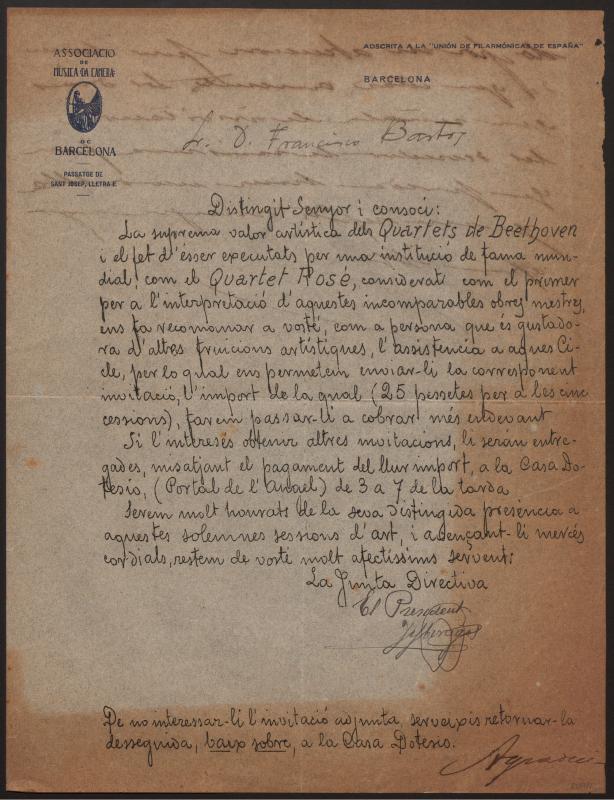 ASSOCIACIO
DE
MÚSICA·DA CAMERA·
DE
BARCELONA
PASSATGE DE
SANT JOSEP, LLETRA E.
ADSCRITA A LA "UNIÓN DE FILARMÓNICAS DE ESPAÑA"
BARCELONA
Sr. D. Francisco Bastos
Distingit Senyor i consoci:
La suprema valor artística dels Quartets de Beethoven
i el fet d'ésser executats per una institució de fama mun-
dial, com el Quartet Rosé, considerat com el primer
per a l'interpretació d'aquestes incomparables obres mestres,
ens fa recomanar a vosté, com a persona que és gustado-
ra d'altres fruicions artístiques, l'assistencia a aques Ci-
cle, per lo qual ens permetem enviar-li la corresponent
invitació, l'import de la qual (25 pessetes per a les cinc
cessions), farem passar-li a cobrar més endevant
Si l'interesés obtenir altres invitacions, li serán entre-
gades, misatjant el pagament del llur import, a la Casa Do-
tesio, (Portal de l'Angel) de 3 a 7 de la tarda
Serem molt honrats de la seva distingida presència a
aquestes solemnes sessions d'art, i agençant-li mercés
cordials, restem de vosté molt afectíssims servent:
La Junta Directiva
El President
De no interessar-li l'invitació adjunta, serveixis retornar-la
desseguida, baix sobre, a la Casa Dotesio.